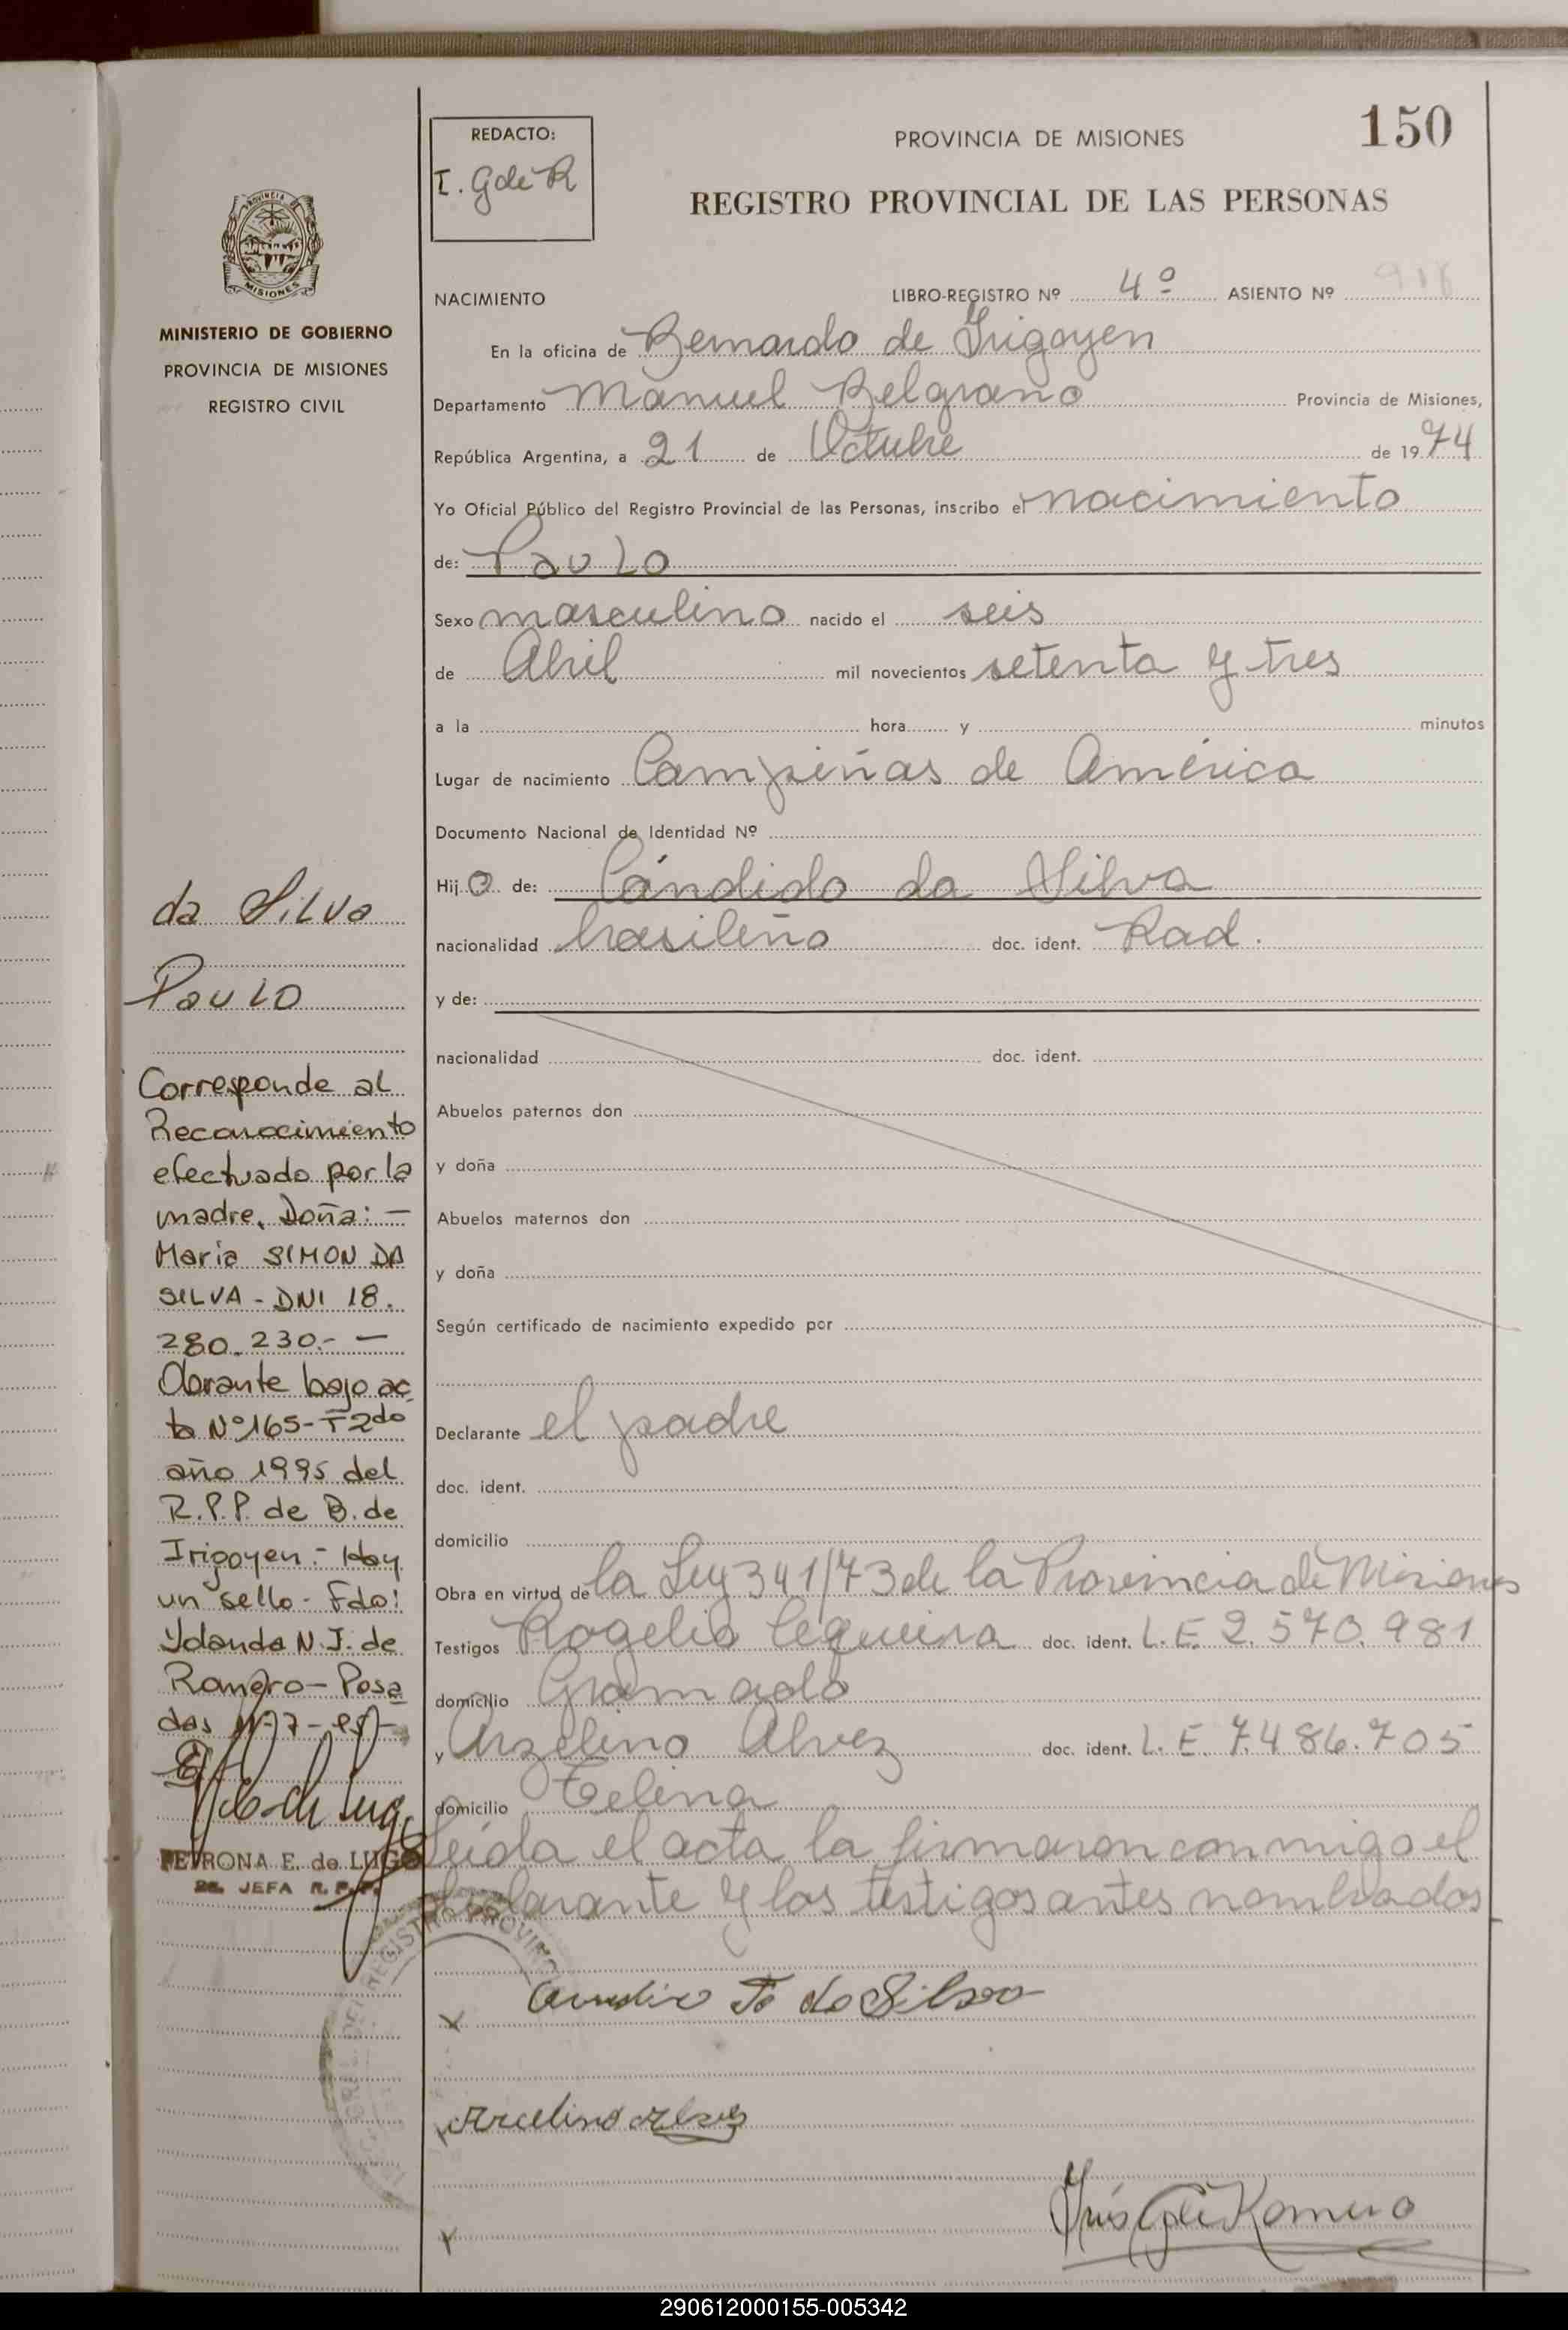 150
REDACTO:
I. G de R
PROVINCIA DE MISIONES
REGISTRO PROVINCIAL DE LAS PERSONAS
MISIONES
MINISTERIO DE GOBIERNO
PROVINCIA DE MISIONES
REGISTRO CIVIL
NACIMIENTO LIBRO-REGISTRO Nº 4º ASIENTO Nº 918
En la oficina de Bernardo de Irigoyen
Departamento Manuel Belgrano Provincia de Misiones,
República Argentina, a 21 de Octubre de 1974
Yo Oficial Público del Registro Provincial de las Personas, inscribo el nacimiento
de: Paulo
Sexo masculino nacido el seis
de Abril mil novecientos setenta y tres
a la hora y minutos
Lugar de nacimiento Campiñas de América
Documento Nacional de Identidad Nº
Hijo de: Cándido da Silva
nacionalidad brasileño doc. ident. Rad.
y de:
nacionalidad doc. ident.
Abuelos paternos don
y doña
Abuelos maternos don
y doña
Según certificado de nacimiento expedido por
Declarante el padre
doc. ident.
domicilio
Obra en virtud de la Ley 341/73 de la Provincia de Misiones
Testigos Rogelio Cequeira doc. ident. L.E. 2.570.981
domicilio Gramado
y Arzelino Alvez doc. ident. L.E. 7.486.705
domicilio Celina
Leída el acta la firmaron conmigo el
declarante y los testigos antes nombrados
da Silva
Paulo
Corresponde al
Reconocimiento
efectuado por la
madre, Doña: -
Maria SIMON DA
SILVA - DNI 18.
280.230.- -
Obrante bajo ac
ta Nº 165 - T 2do
año 1995 del
R.P.P. de B. de
Irigoyen.- Hay
un sello - Fdo:
Ydanda N. J. de
Romero - Posa
das
PETRONA E. de LUGO
JEFA R.P.P.
da Silva
Arcelino Alvez
Iris G de Romero
290612000155-005342